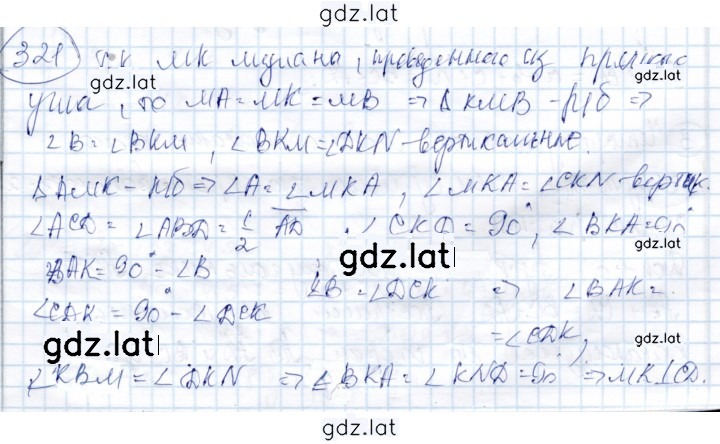 gdz.lat
321 т.к МК медиана, проведенного из прямого
gdz.lat
угла, то МА=МК=МВ ⇒ Δ КМВ - р/б ⇒
gdz.lat
∠В=∠ВКМ, ∠ВКМ=∠DKN - вертикальные.
ΔАМК - р/б ⇒ ∠А=∠МКА, ∠МКА=∠CKN - вертик.
gdz.lat
∠ACD = ∠ABD = 1/2 AD. ∠CKD = 90°, ∠BKA=90°
gdz.lat
∠BAK = 90° - ∠B
∠B = ∠DCK ⇒ ∠BAK =
∠CDK = 90° - ∠DCK
= ∠CDK,
gdz.lat
gdz.lat
∠KBM = ∠DKN ⇒ ∠BKA = ∠KND = 90° ⇒ MK⊥CD.
gdz.lat